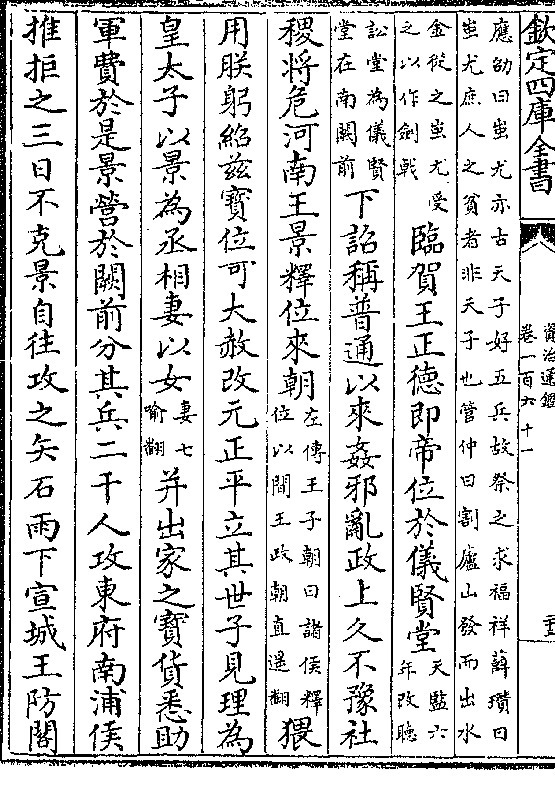 欽定四庫全書
資治通鑑
卷一百六十一
應劭曰蚩尤亦古天子好五兵故祭之求福祥薛瓚曰
蚩尤庶人之貪者非天子也管仲曰割廬山發而出水
金從之蚩尤受
之以作劍戟
臨賀王正德即帝位於儀賢堂
天監六
年改聽
訟堂為儀賢
堂在南闕前
下詔稱普通以來姦邪亂政上久不豫社
稷將危河南王景釋位來朝
左傳王子朝曰諸侯釋
位以間王政朝直遥翻
猥
用朕躬紹兹寶位可大赦改元正平立其世子見理為
皇太子以景為丞相妻以女
妻七
喻翻
并出家之寶貨悉助
軍費於是景營於闕前分其兵二千人攻東府南浦侯
推拒之三日不克景自往攻之矢石雨下宣城王防閣